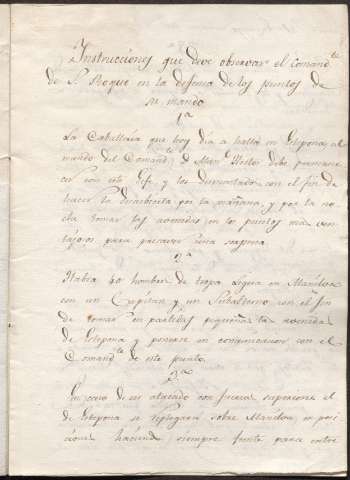 Instrucciones que deve observar el Comand.te
de S. Roque en la defensa de los puntos de
su mando
1.a
La Caballeria que hoy dia se halla en Estepona, al
mando del Comand.te d.
debe permane
cer con este Gefe, y los desmontados, con el fin de
hacer la descubierta por la mañana, y por la no
che tomar las avenidas en los puntos mas ven
tajosos para precaver una sorpresa
2.a
Habra 40 hombres de tropa ligera en Manilva
con un Capitan y un Subalterno con el fin
de tomar en partidas pequeñas la avenida
de Estepona y ponerse en comunicacion con el
Comand.te de este punto.
3.a
En caso de ser atacado con fuerzas superiores el
de Estepona se replegará sobre Manilva, en posi
ciones haciendo siempre frente para entre